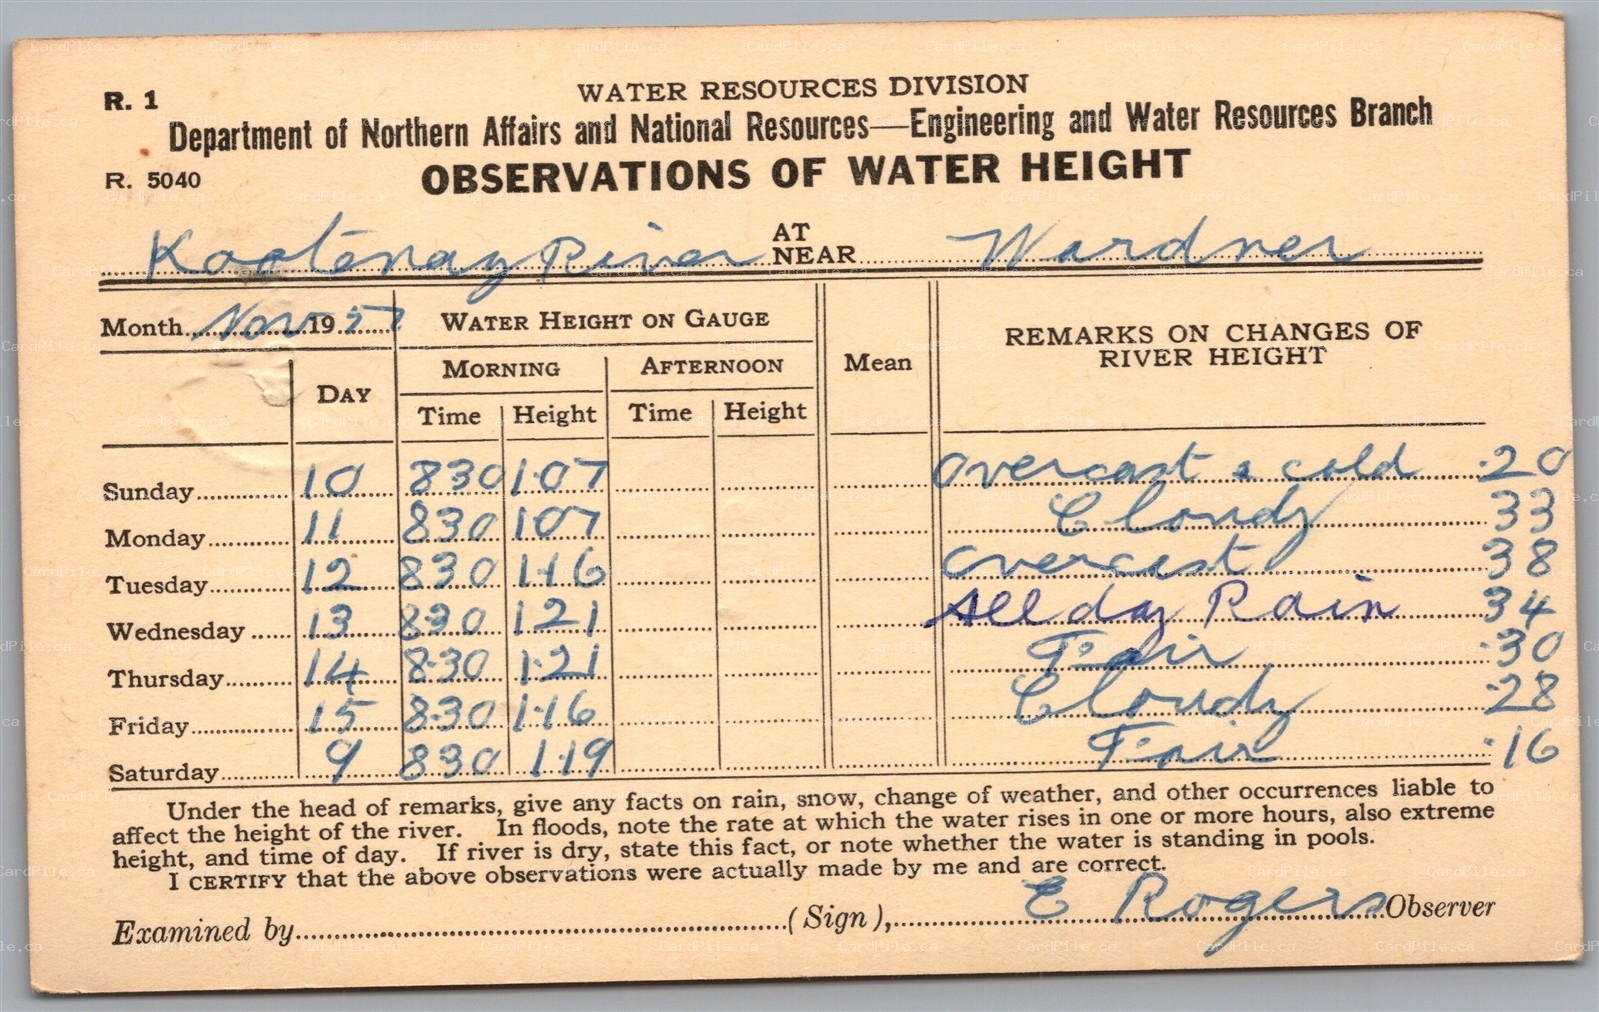 R. 1
WATER RESOURCES DIVISION
Department of Northern Affairs and National Resources—Engineering and Water Resources Branch
R. 5040
OBSERVATIONS OF WATER HEIGHT
Kootenay River AT NEAR Wardner
Month Nov 1957
WATER HEIGHT ON GAUGE
REMARKS ON CHANGES OF
RIVER HEIGHT
DAY MORNING AFTERNOON Mean
Time Height Time Height
Sunday 10 830 1.07 Overcast & cold .20
Monday 11 830 107 Cloudy 33
Tuesday 12 830 1.16 Overcast 38
Wednesday 13 8.30 121 All day Rain 34
Thursday 14 8.30 1.21 Fair .30
Friday 15 8.30 1.16 Cloudy .28
Saturday 9 830 1.19 Fair .16
Under the head of remarks, give any facts on rain, snow, change of weather, and other occurrences liable to
affect the height of the river. In floods, note the rate at which the water rises in one or more hours, also extreme
height, and time of day. If river is dry, state this fact, or note whether the water is standing in pools.
I CERTIFY that the above observations were actually made by me and are correct.
Examined by (Sign), E Rogers Observer
CardPile.ca